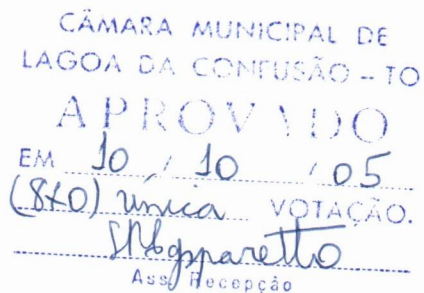 CÂMARA MUNICIPAL DE
LAGOA DA CONFUSÃO - TO
APROVADO
EM 10 / 10 / 05
(8x0) única VOTAÇÃO.
Ass Recepção